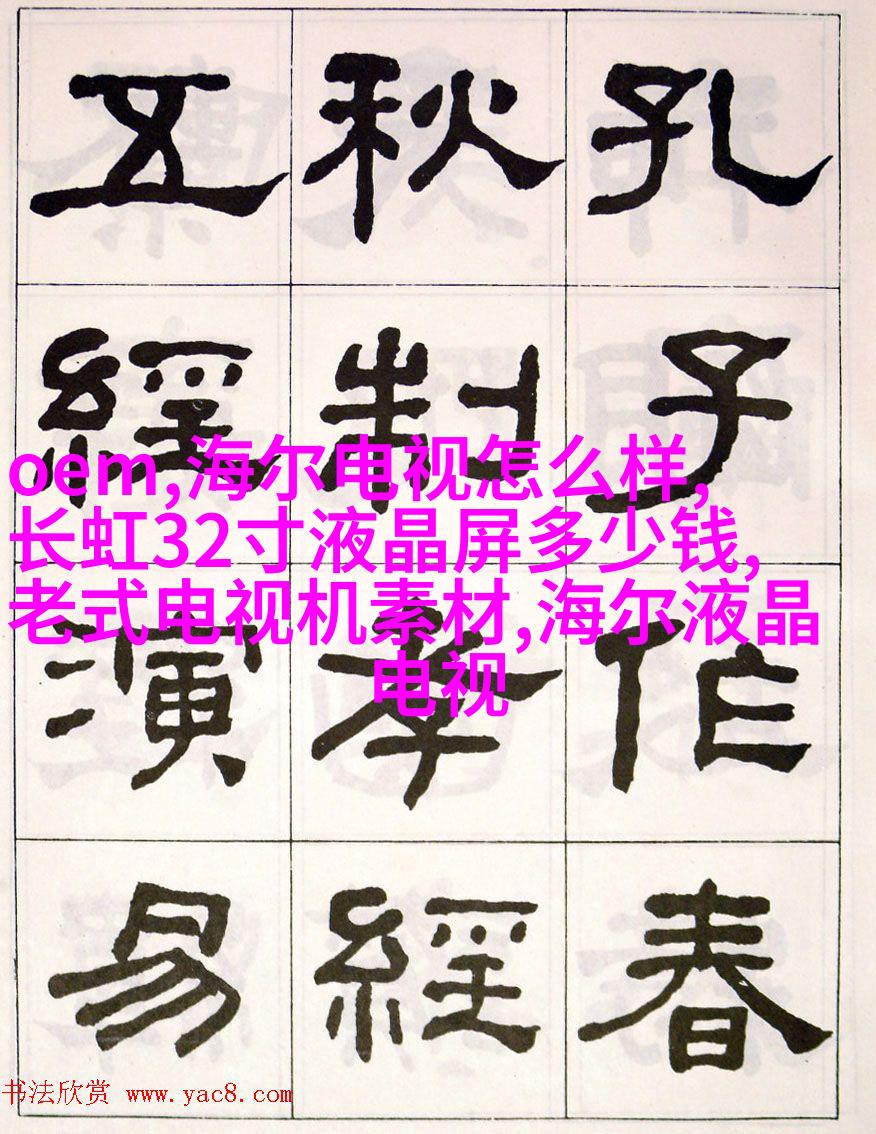 孔子作春
秋制孝經
五經演易
oem,海尔电视怎么样,
长虹32寸液晶屏多少钱,
老式电视机素材,海尔液晶
电视
书法欣赏 www.yac8.com